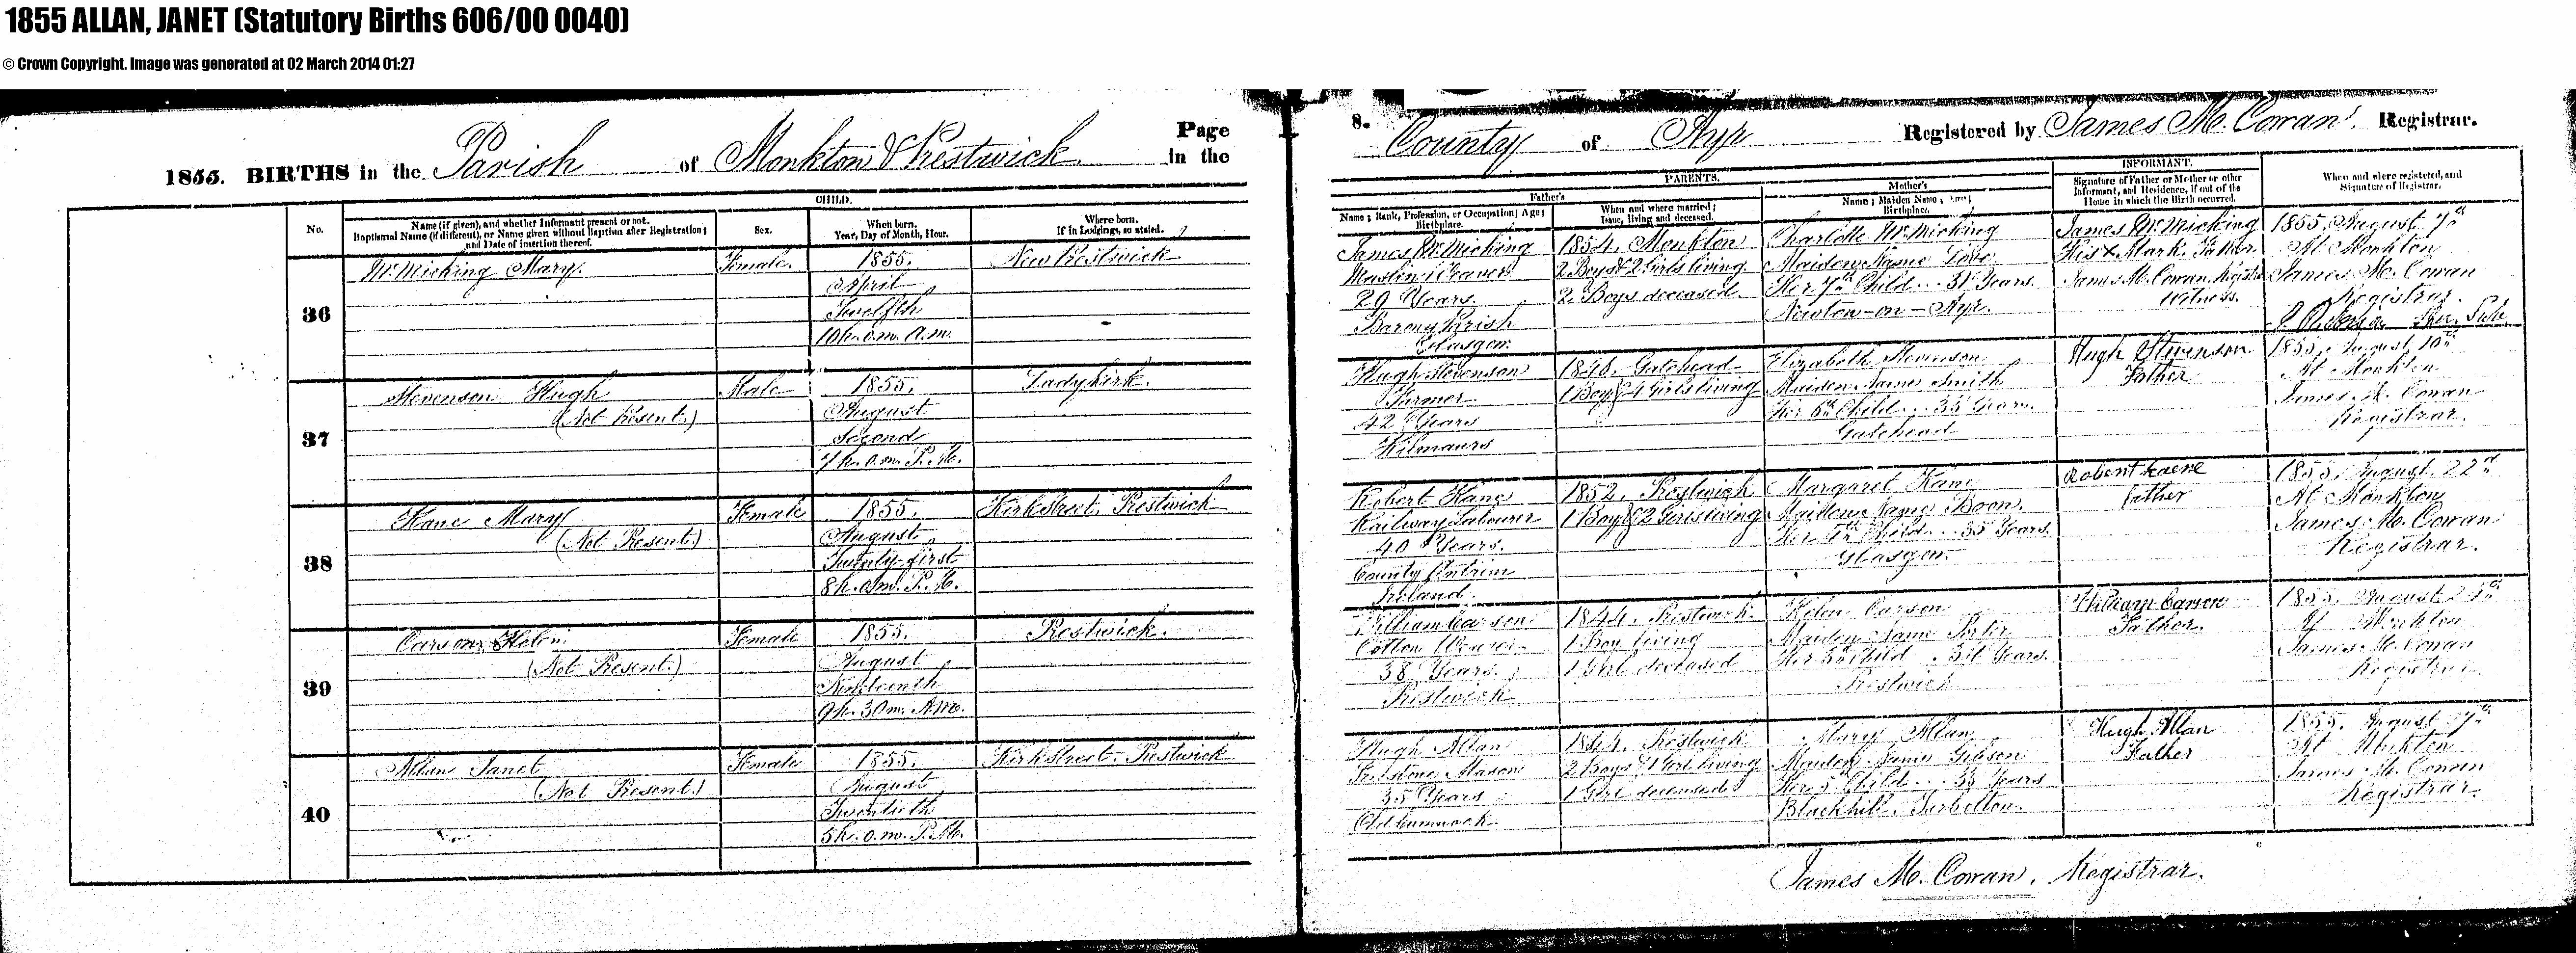 1855 ALLAN, JANET (Statutory Births 606/00 0040)
© Crown Copyright. Image was generated at 02 March 2014 01:27
1855. BIRTHS in the Parish of Monkton & Prestwick Page in the
8. County of Ayr Registered by James M. Cowan Registrar.
CHILD.
No.
Name (if given), and whether Informant present or not.
Baptismal Name (if different), or Name given without Baptism after Registration;
and Date of insertion thereof.
Sex.
When born.
Year, Day of Month, Hour.
Where born.
If in Lodgings, so stated.
PARENTS.
Father's
Name; Rank, Profession, or Occupation; Age;
Birthplace.
When and where married;
Issue, living and deceased.
Mother's
Name; Maiden Name; Age;
Birthplace.
INFORMANT.
Signature of Father or Mother or other
Informant, and Residence, if out of the
House in which the Birth occurred.
When and where registered, and
Signature of Registrar.
36
McMicking Mary.
Female.
1855.
April
Twelfth
10h. 0m. A.m.
New Prestwick
James McMicking
Muslin Weaver
29 Years
Barony Parish
Glasgow.
1854. Monkton
2 Boys & 2 Girls living
2 Boys deceased.
Charlotte McMicking
Maiden Name Love
Her 7th Child... 31 Years.
Newton-on-Ayr.
James McMicking
His x Mark. Father.
James M. Cowan, Registrar
Witness.
1855. August 7th
At Monkton
James M. Cowan
Registrar.
37
Stevenson Hugh
(Not Present.)
Male
1855.
August
Second
7h. 0.m. P.M.
Ladykirk.
Hugh Stevenson
Farmer
42 Years
Kilmaurs
1846. Gatehead
1 Boy & 4 Girls living
Elizabeth Stevenson
Maiden Name Smith
Her 6th Child... 35 Years.
Gatehead
Hugh Stevenson
Father
1855. August 10th
At Monkton
James M. Cowan
Registrar.
38
Kane Mary
(Not Present.)
Female
1855.
August
Twenty-first
8h. 0m. P.M.
Kirk Street Prestwick
Robert Kane
Railway Labourer
40 Years.
County Antrim
Ireland.
1852. Prestwick
1 Boy & 2 Girls living
Margaret Kane
Maiden Name Boon.
Her Child... 35 Years.
Glasgow.
Robert Kaene
father
1855. August 22d
At Monkton
James M. Cowan
Registrar.
39
Carson Helen
(Not Present.)
Female
1855.
August
Nineteenth
9h. 30m. A.m.
Prestwick.
William Carson
Cotton Weaver
38 Years.
Prestwick
1844. Prestwick.
1 Boy living
1 Girl deceased
Helen Carson
Maiden Name Porter
Her 3d Child Years.
Prestwick
William Carson
Father.
1855. August
At Monkton
James M. Cowan
Registrar
40
Allan Janet
(Not Present.)
Female
1855.
August
Twentieth
5h. 0.m. P.M.
Kirk Street Prestwick
Hugh Allan
Freestone Mason
35 Years
Old Cumnock.
1844. Prestwick
2 Boys & 1 Girl living
1 Girl deceased
Mary Allan
Maiden Name Gibson
Her 5 Child... 33 Years
Blackhill, Tarbolton.
Hugh Allan
Father
1855. August 27th
At Monkton
James M. Cowan
Registrar.
James M. Cowan, Registrar.